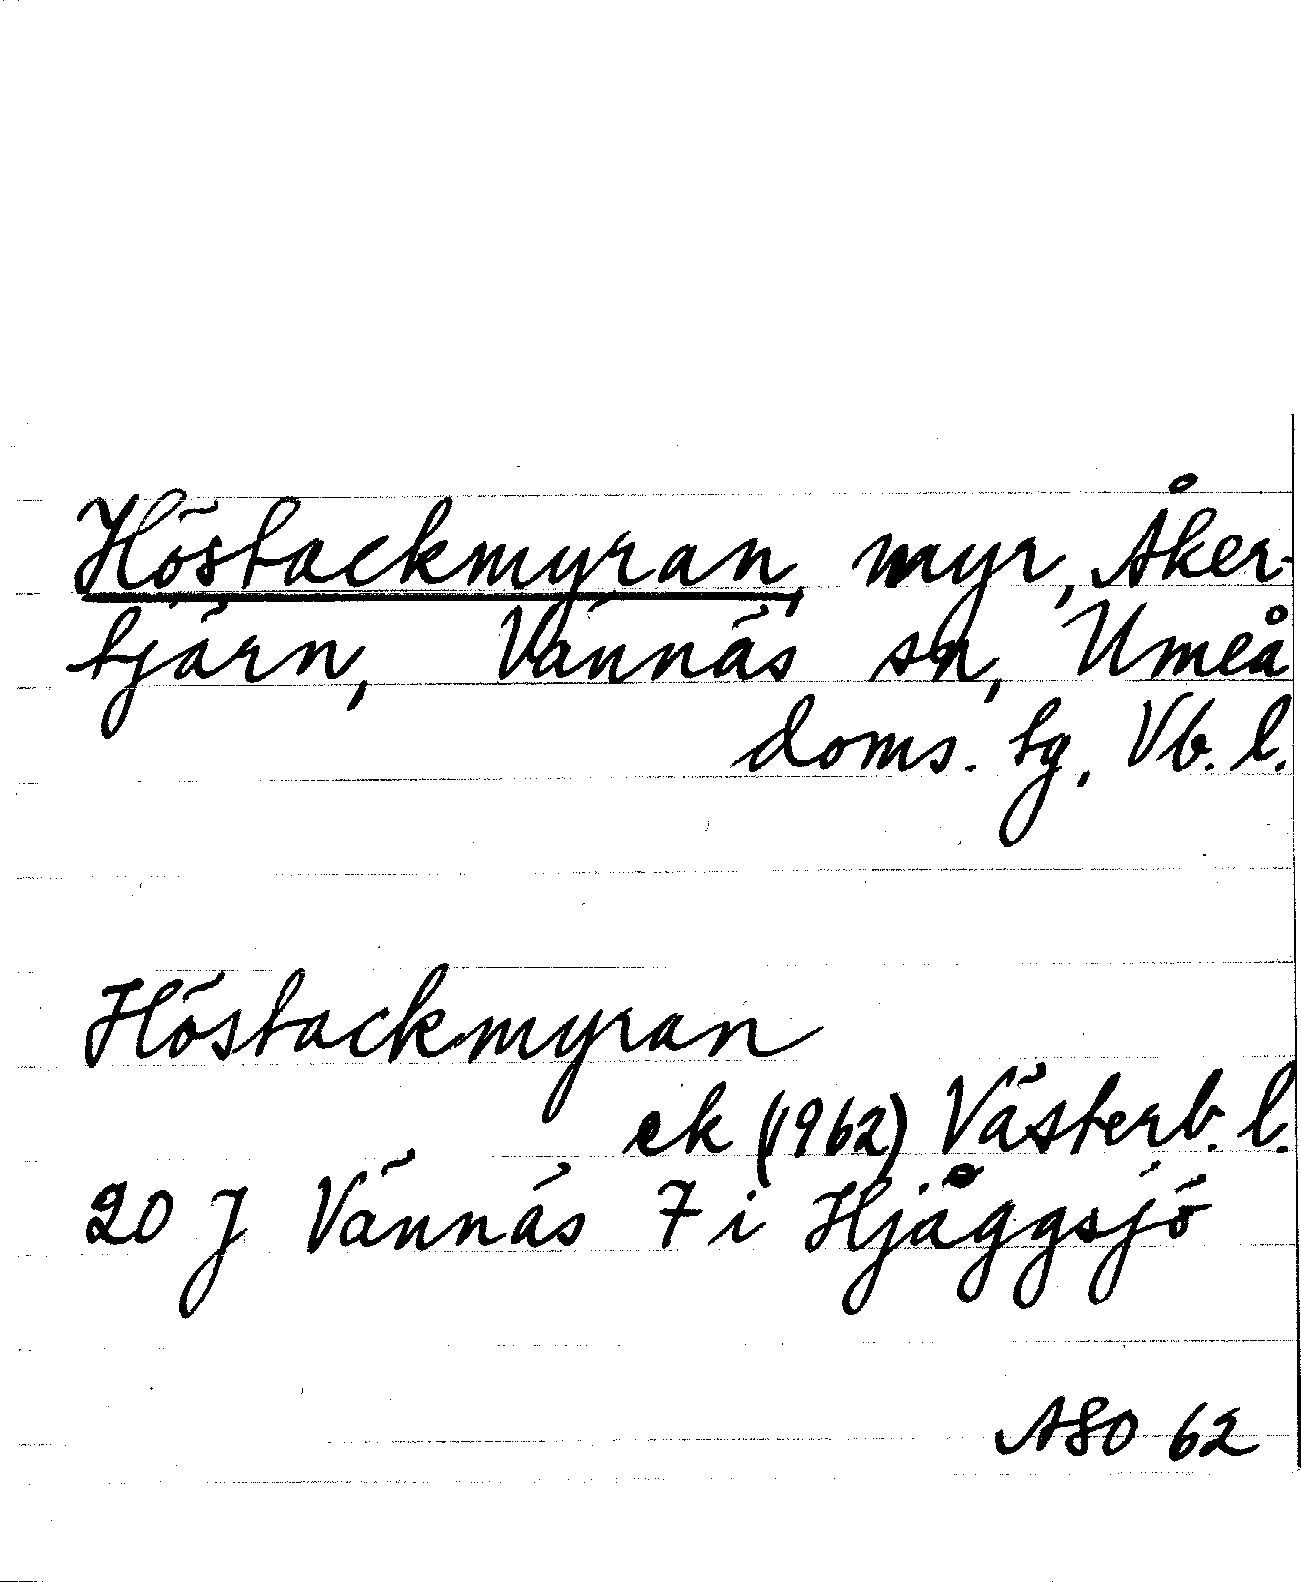 Höstackmyran, myr, Åker-
tjärn, Vännäs sn, Umeå
doms. tg, Vb. l.
Höstackmyran
ek (1962) Västerb. l.
20 J Vännäs 7 i Hjåggsjö
ASO 62